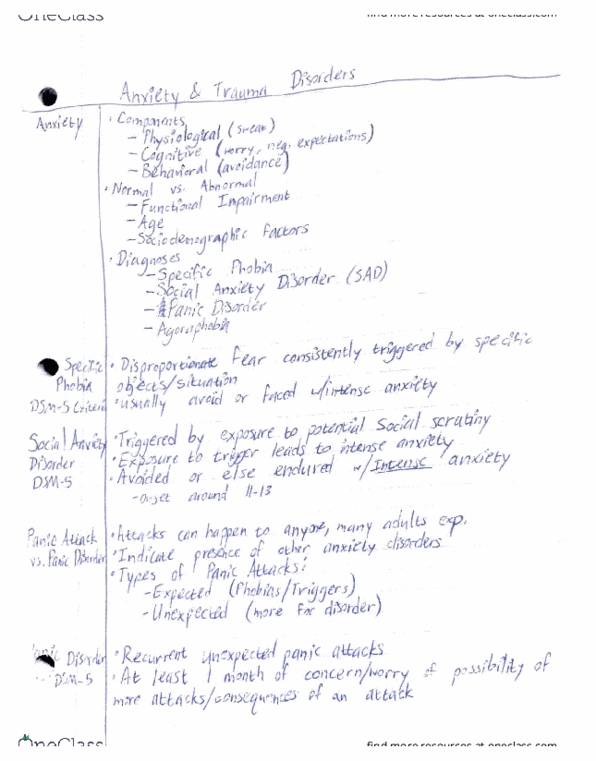 OneClass
find more resources at oneclass.com
Anxiety & Trauma Disorders
Anxiety
· Components
- Physiological (sweat)
- Cognitive (worry, neg. expectations)
- Behavioral (avoidance)
· Normal vs. Abnormal
- Functional Impairment
- Age
- Sociodemographic factors
· Diagnoses
- Specific Phobia
- Social Anxiety Disorder (SAD)
- Panic Disorder
- Agoraphobia
Specific
Phobia
DSM-5 Criteria
· Disproportionate fear consistently triggered by specific
objects/situation
· usually avoid or faced w/intense anxiety
Social Anxiety
Disorder
DSM-5
· Triggered by exposure to potential social scrutiny
· Exposure to trigger leads to intense anxiety
· Avoided or else endured w/Intense anxiety
- Onset around 11-13
Panic Attack
vs. Panic Disorder
· Attacks can happen to anyone, many adults exp.
· Indicate presence of other anxiety disorders
· Types of Panic Attacks:
- Expected (Phobias/Triggers)
- Unexpected (more for disorder)
Disorder
DSM-5
· Recurrent unexpected panic attacks
· At least 1 month of concern/worry of possibility of
more attacks/consequences of an attack
OneClass
find more resources at oneclass.com